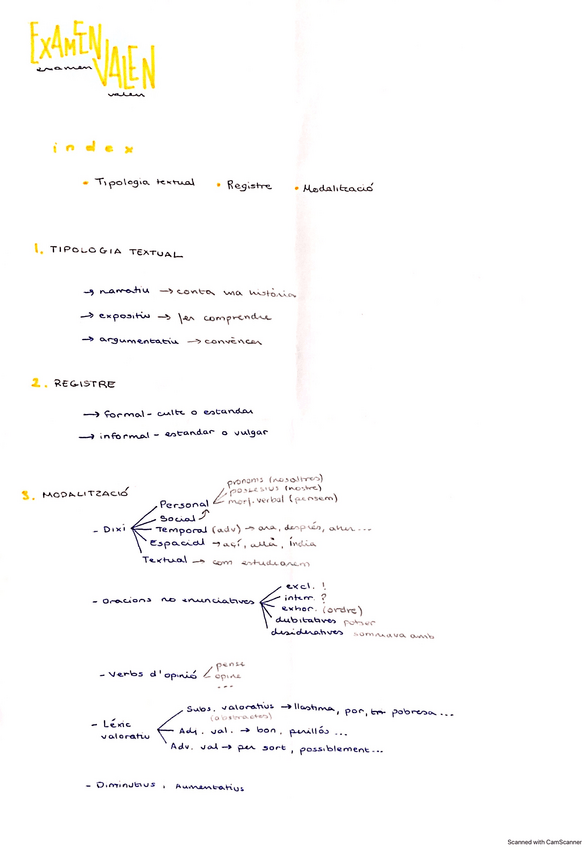 EXAMEN
examen
VALEN
valen
index
• Tipologia textual • Registre • Modalització
1. TIPOLOGIA TEXTUAL
→ narratiu → conta una història
→ expositiu → fer comprendre
→ argumentatiu → convèncer
2. REGISTRE
→ formal - culte o estandar
→ informal - estandar o vulgar
3. MODALITZACIÓ
- Dixi
Personal
pronoms (nosaltres)
possesius (nostre)
morf. verbal (pensem)
Social
Temporal (adv) → ara, després, ahir...
Espacial → açí, allà, Índia
Textual → com estudiarem
- Oracions no enunciatives
excl. !
interr. ?
exhor. (ordre)
dubitatives potser
desideratives somniava amb
- Verbs d'opinió
pense
opine
...
- Lèxic valoratiu
Subs. valoratius → llastima, por, pobresa...
(abstractes)
Adj. val. → bon, perillós...
Adv. val → per sort, possiblement...
- Diminutius i Aumentatius
Scanned with CamScanner